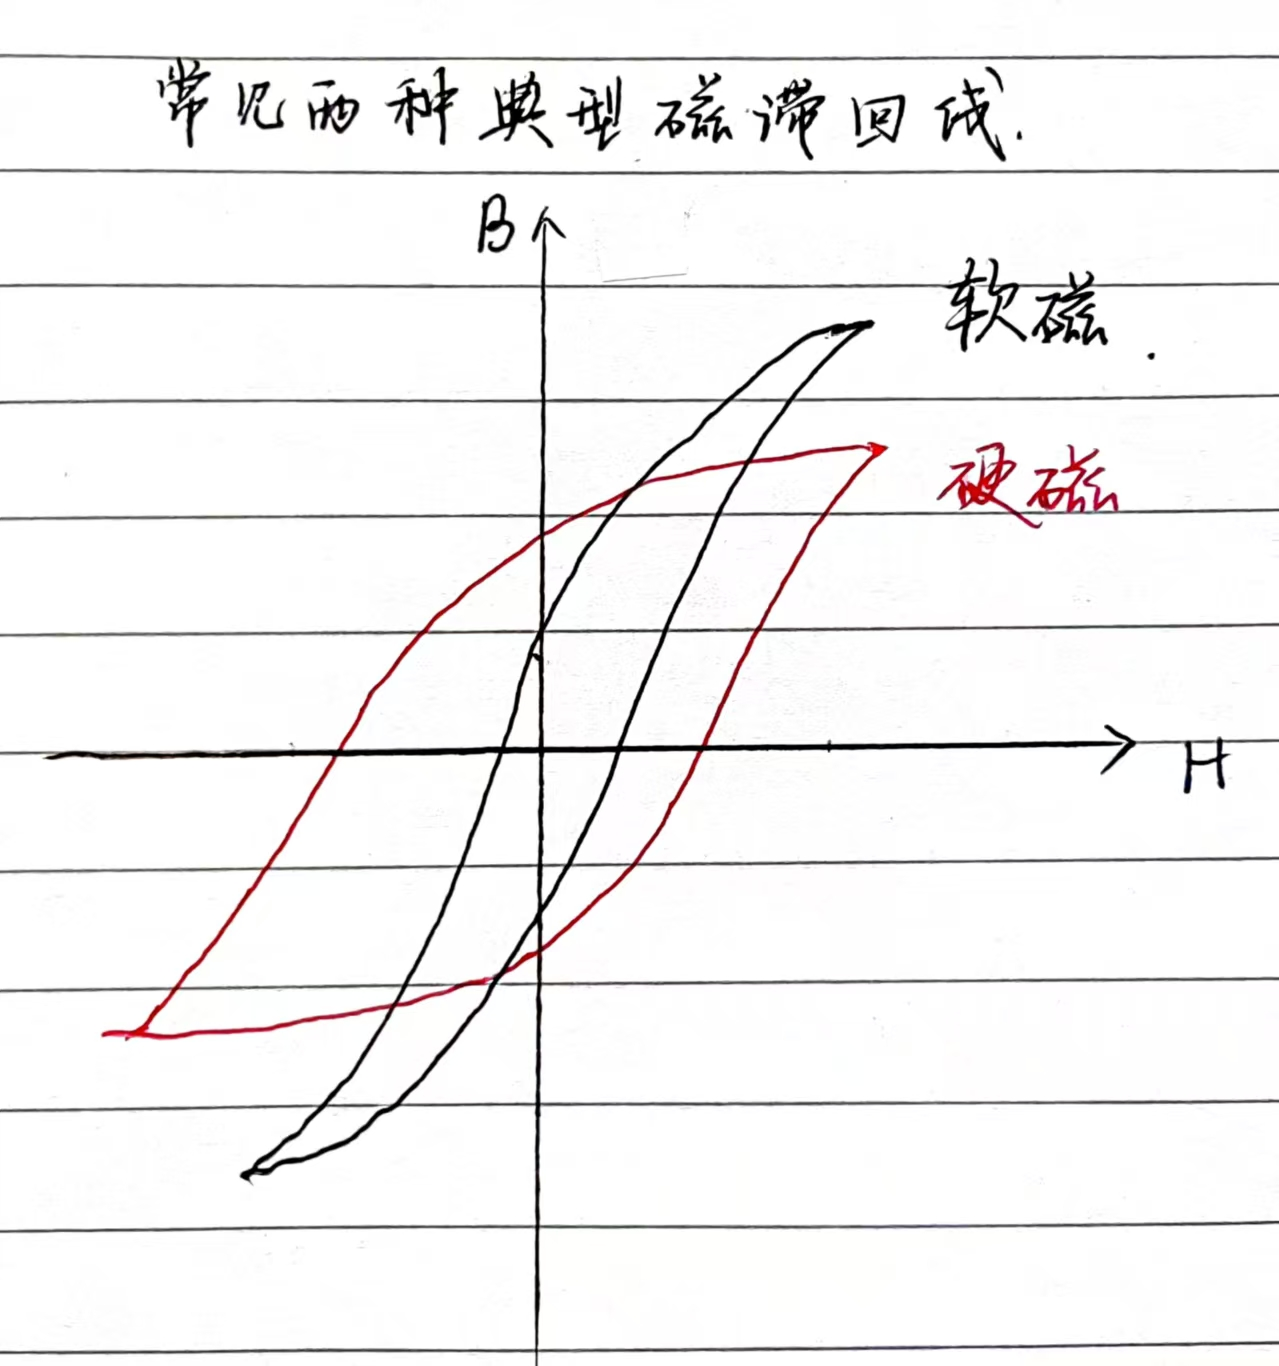 常见两种典型磁滞回线.
B
软磁.
硬磁
H